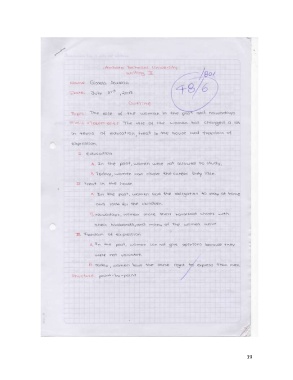 Writing I
Name:
Date: July
/80
48/6
Outline
Topic: The role of the women in the past and nowadays
The role of the women has changed a lot
in terms of education, treat in the house and freedom of
expression.
I. Education
a. In the past, women were not allowed to study.
b. Today, women can choose the career they like
II. Treat in the house
a. In the past, women had the obligation to stay at home
and care for the children.
b. Nowadays, women share their household chores with
their husbands, and many of the women work
III. Freedom of expression
a. In the past, women did not give opinion because they
were not allowed
b. Today, women have the same right to express their
point-by-point
33